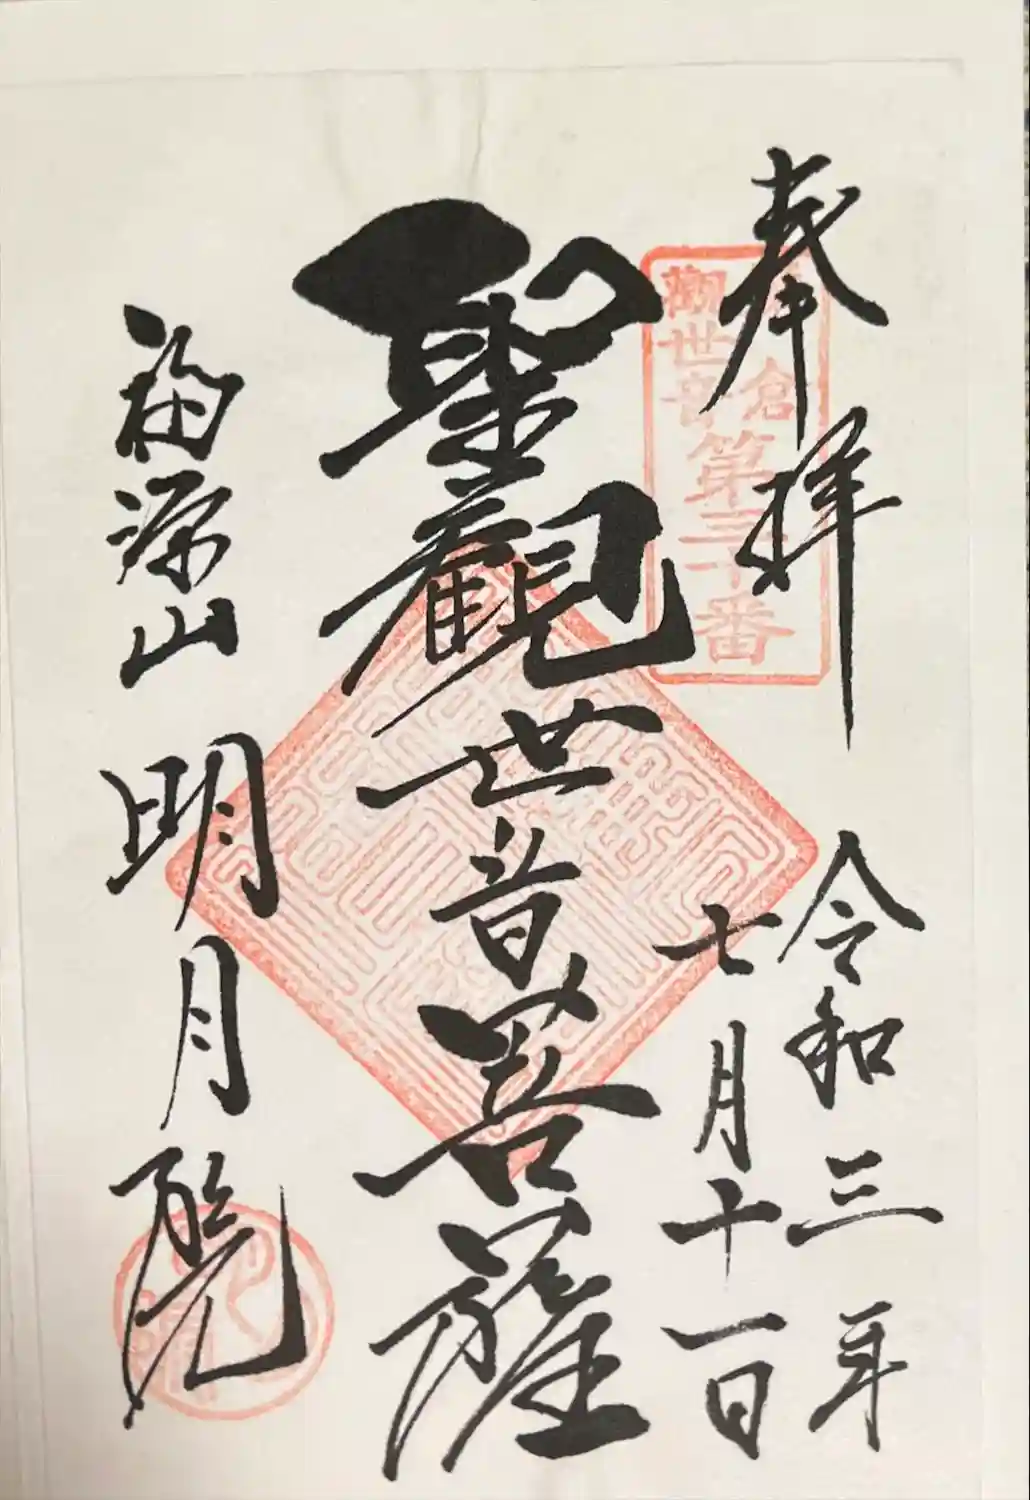 奉拝
令和三年
七月十一日
聖観世音菩薩
福源山 明月院
倉
觀世音
第三十番